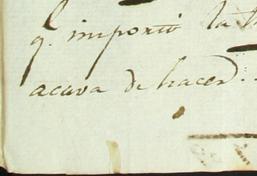 q. importó la
acava de hacer.